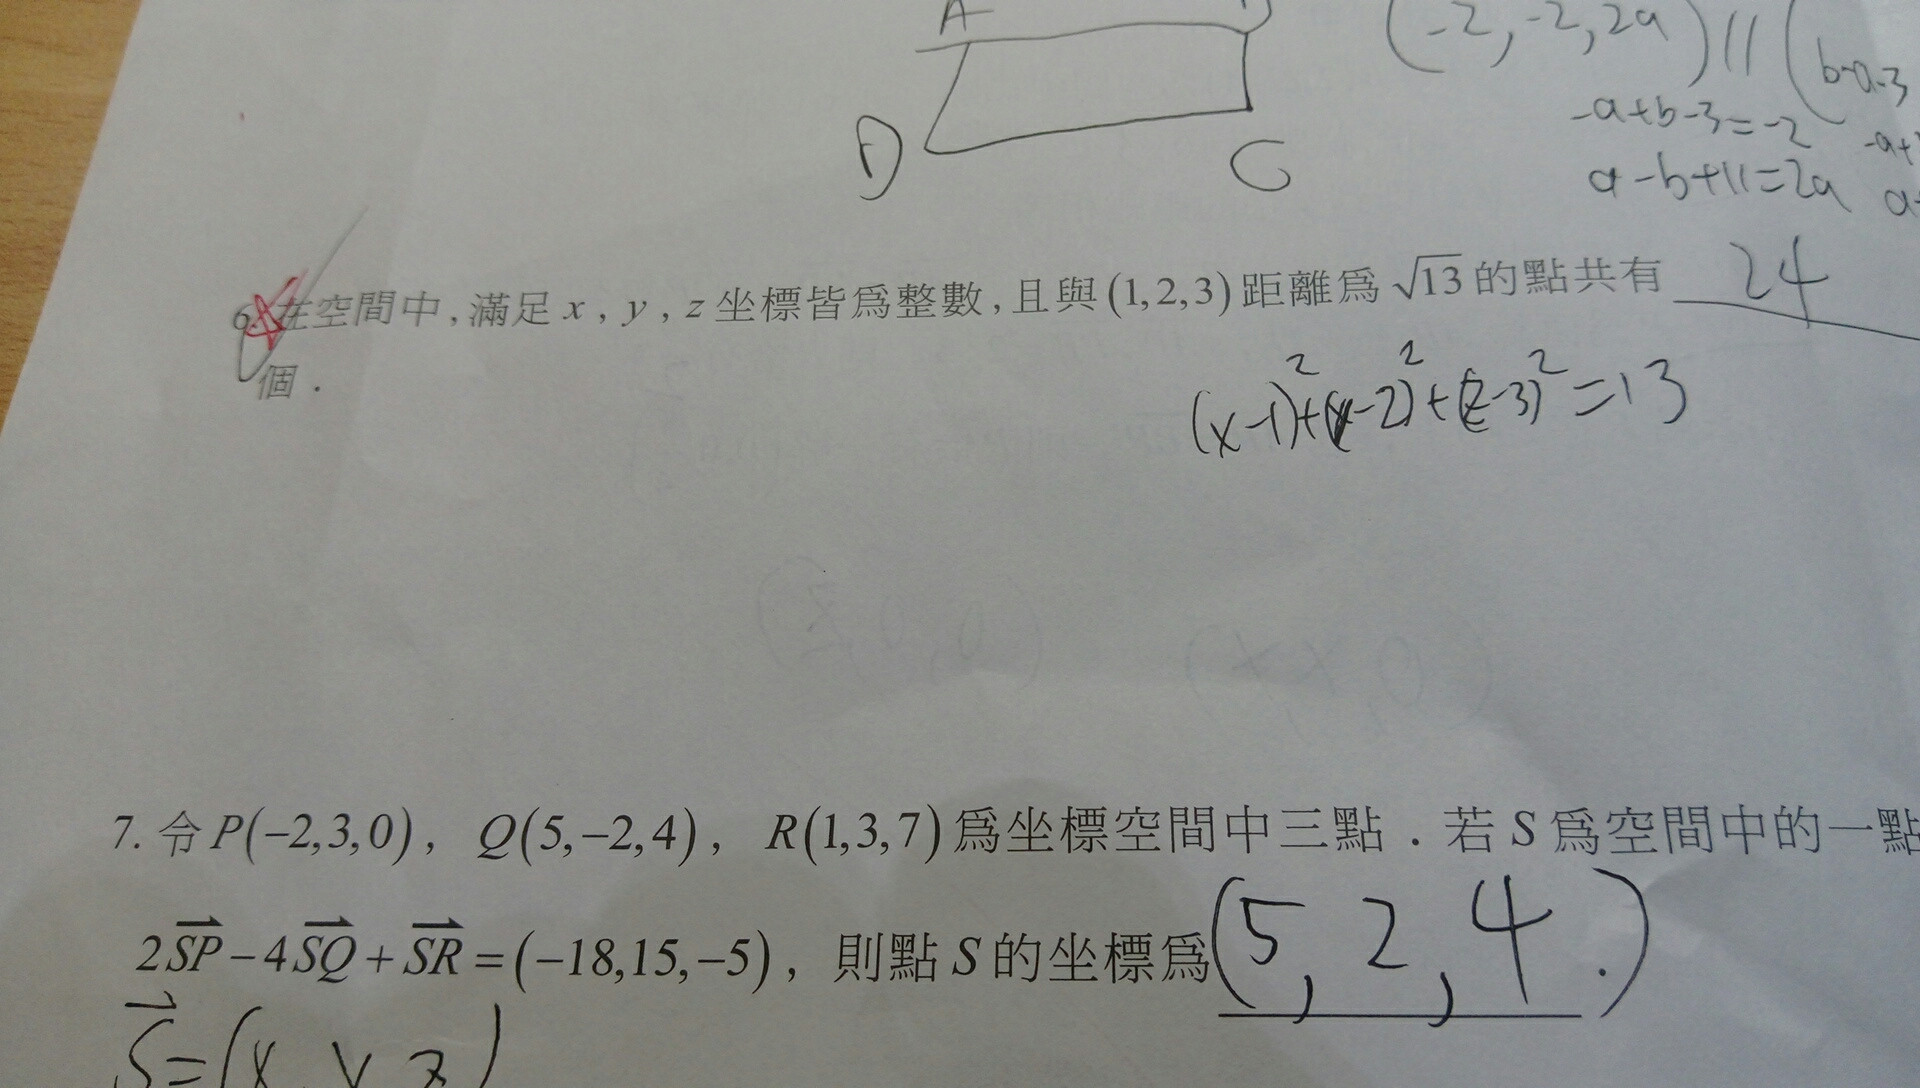 A
D
C
(-2,-2,2a)//(b-a-3
-a+b-3=-2
a-b+11=2a
6. 在空間中,滿足 x , y , z 坐標皆為整數,且與 (1,2,3) 距離為 √13 的點共有 24
個.
(x-1)²+(y-2)²+(z-3)²=13
7. 令 P(-2,3,0), Q(5,-2,4), R(1,3,7) 為坐標空間中三點.若 S 為空間中的一點
2SP⃗-4SQ⃗+SR⃗=(-18,15,-5), 則點 S 的坐標為 (5,2,4.)
S⃗=(x,y,z)